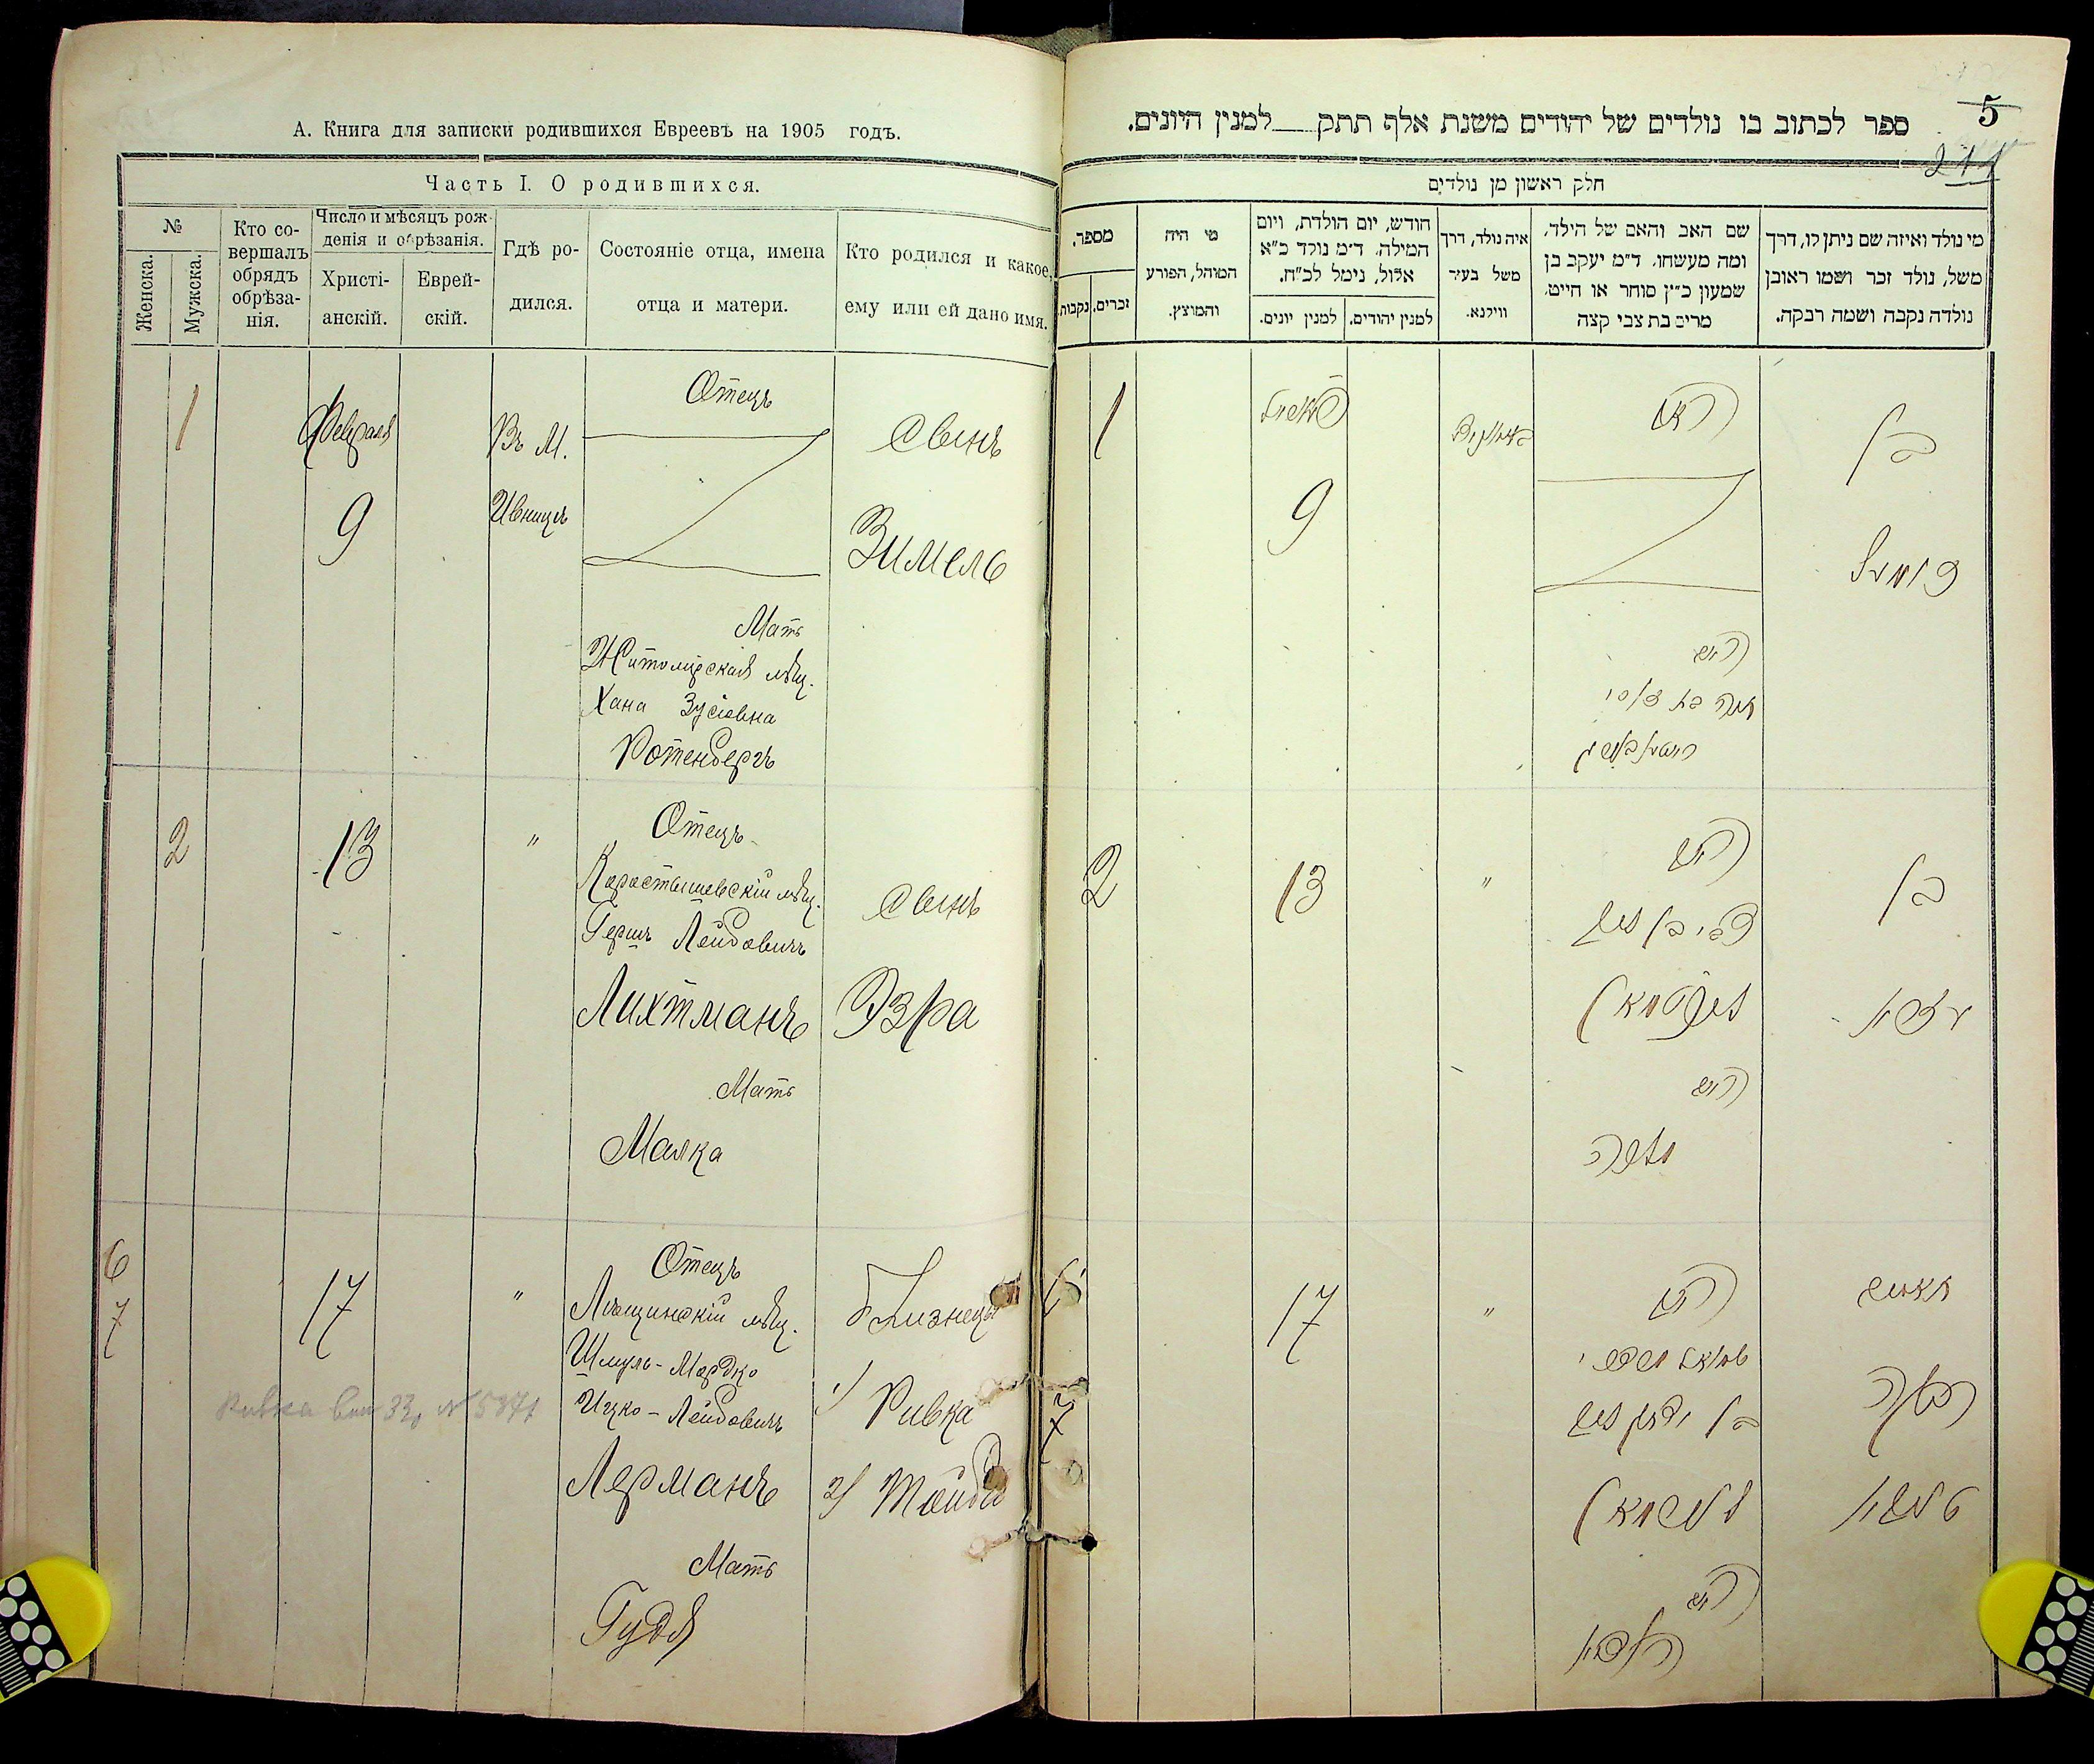 А. Книга для записки родившихся Евреевъ на 1905 годъ.
Часть I. О родившихся.
№
Женска.
Мужска.
Кто со-
вершалъ
обрядъ
обрѣза-
нія.
Число и мѣсяцъ рож-
денія и обрѣзанія.
Христі-
анскій.
Еврей-
скій.
Гдѣ ро-
дился.
Состояніе отца, имена
отца и матери.
Кто родился и какое,
ему или ей дано имя.
1
Февраля
9
Въ М.
Ивницѣ
Отецъ
Мать
Житомірская мѣщ.
Хана Зусіовна
Ротенбергъ
Сынъ
Зимель
2
13
"
Отецъ
Коростышевскій мѣщ.
Гершъ Лейбовичъ
Лихтманъ
Мать
Малка
Сынъ
Эзра
6
7
17
"
Отецъ
мѣщ.
Шмуль-Мордко
Ицко-Лейбовичъ
Лерманъ
Мать
Гудя
Близнецы
1) Ривка
2)
Ривка
5
211
ספר לכתוב בו נולדים של יהודים משנת אלף תתק למנין היונים.
חלק ראשון מן נולדים
מספר,
זכרים,
נקבות
מי היה
המוהל, הפורע
והמוצץ.
חודש, יום הולדת, ויום
המילה, ד״מ נולד כ״א
אלול, נימל לכ״ח.
למנין יונים.
למנין יהודים.
איה נולד, דרך
משל בעיר
ווילנא.
שם האב והאם של הילד,
ומה מעשהו, ד״מ יעקב בן
שמעון כ״ץ סוחר או חייט,
מרים בת צבי קצה
מי נולד ואיזה שם ניתן לו, דרך
משל, נולד זכר ושמו ראובן
נולדה נקבה ושמה רבקה.
1
9
האב
האם
חנה בת זוסי
בן
זימל
2
13
"
האב
צבי בן ליב
ליכטמאן
האם
מלכה
בן
עזרא
7
17
"
האב
שמואל מרדכי
בן יצחק ליב
לערמאן
האם
תאומים
רבקה